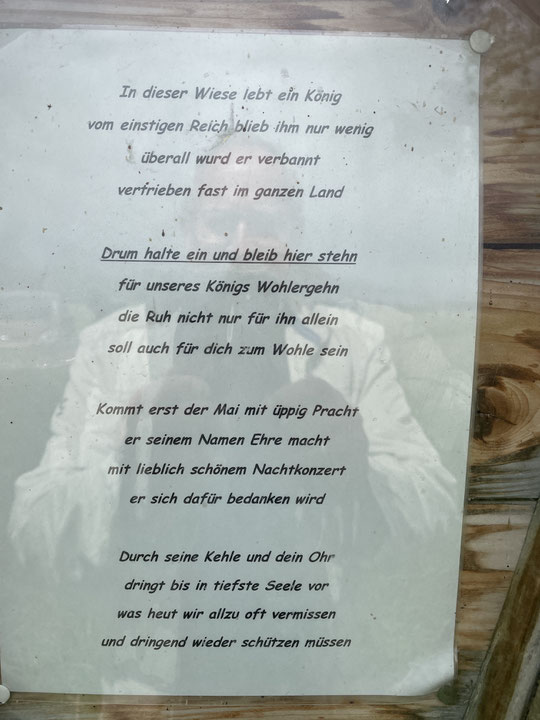 In dieser Wiese lebt ein König
vom einstigen Reich blieb ihm nur wenig
überall wurd er verbannt
verfrieben fast im ganzen Land
Drum halte ein und bleib hier stehn
für unseres Königs Wohlergehn
die Ruh nicht nur für ihn allein
soll auch für dich zum Wohle sein
Kommt erst der Mai mit üppig Pracht
er seinem Namen Ehre macht
mit lieblich schönem Nachtkonzert
er sich dafür bedanken wird
Durch seine Kehle und dein Ohr
dringt bis in tiefste Seele vor
was heut wir allzu oft vermissen
und dringend wieder schützen müssen